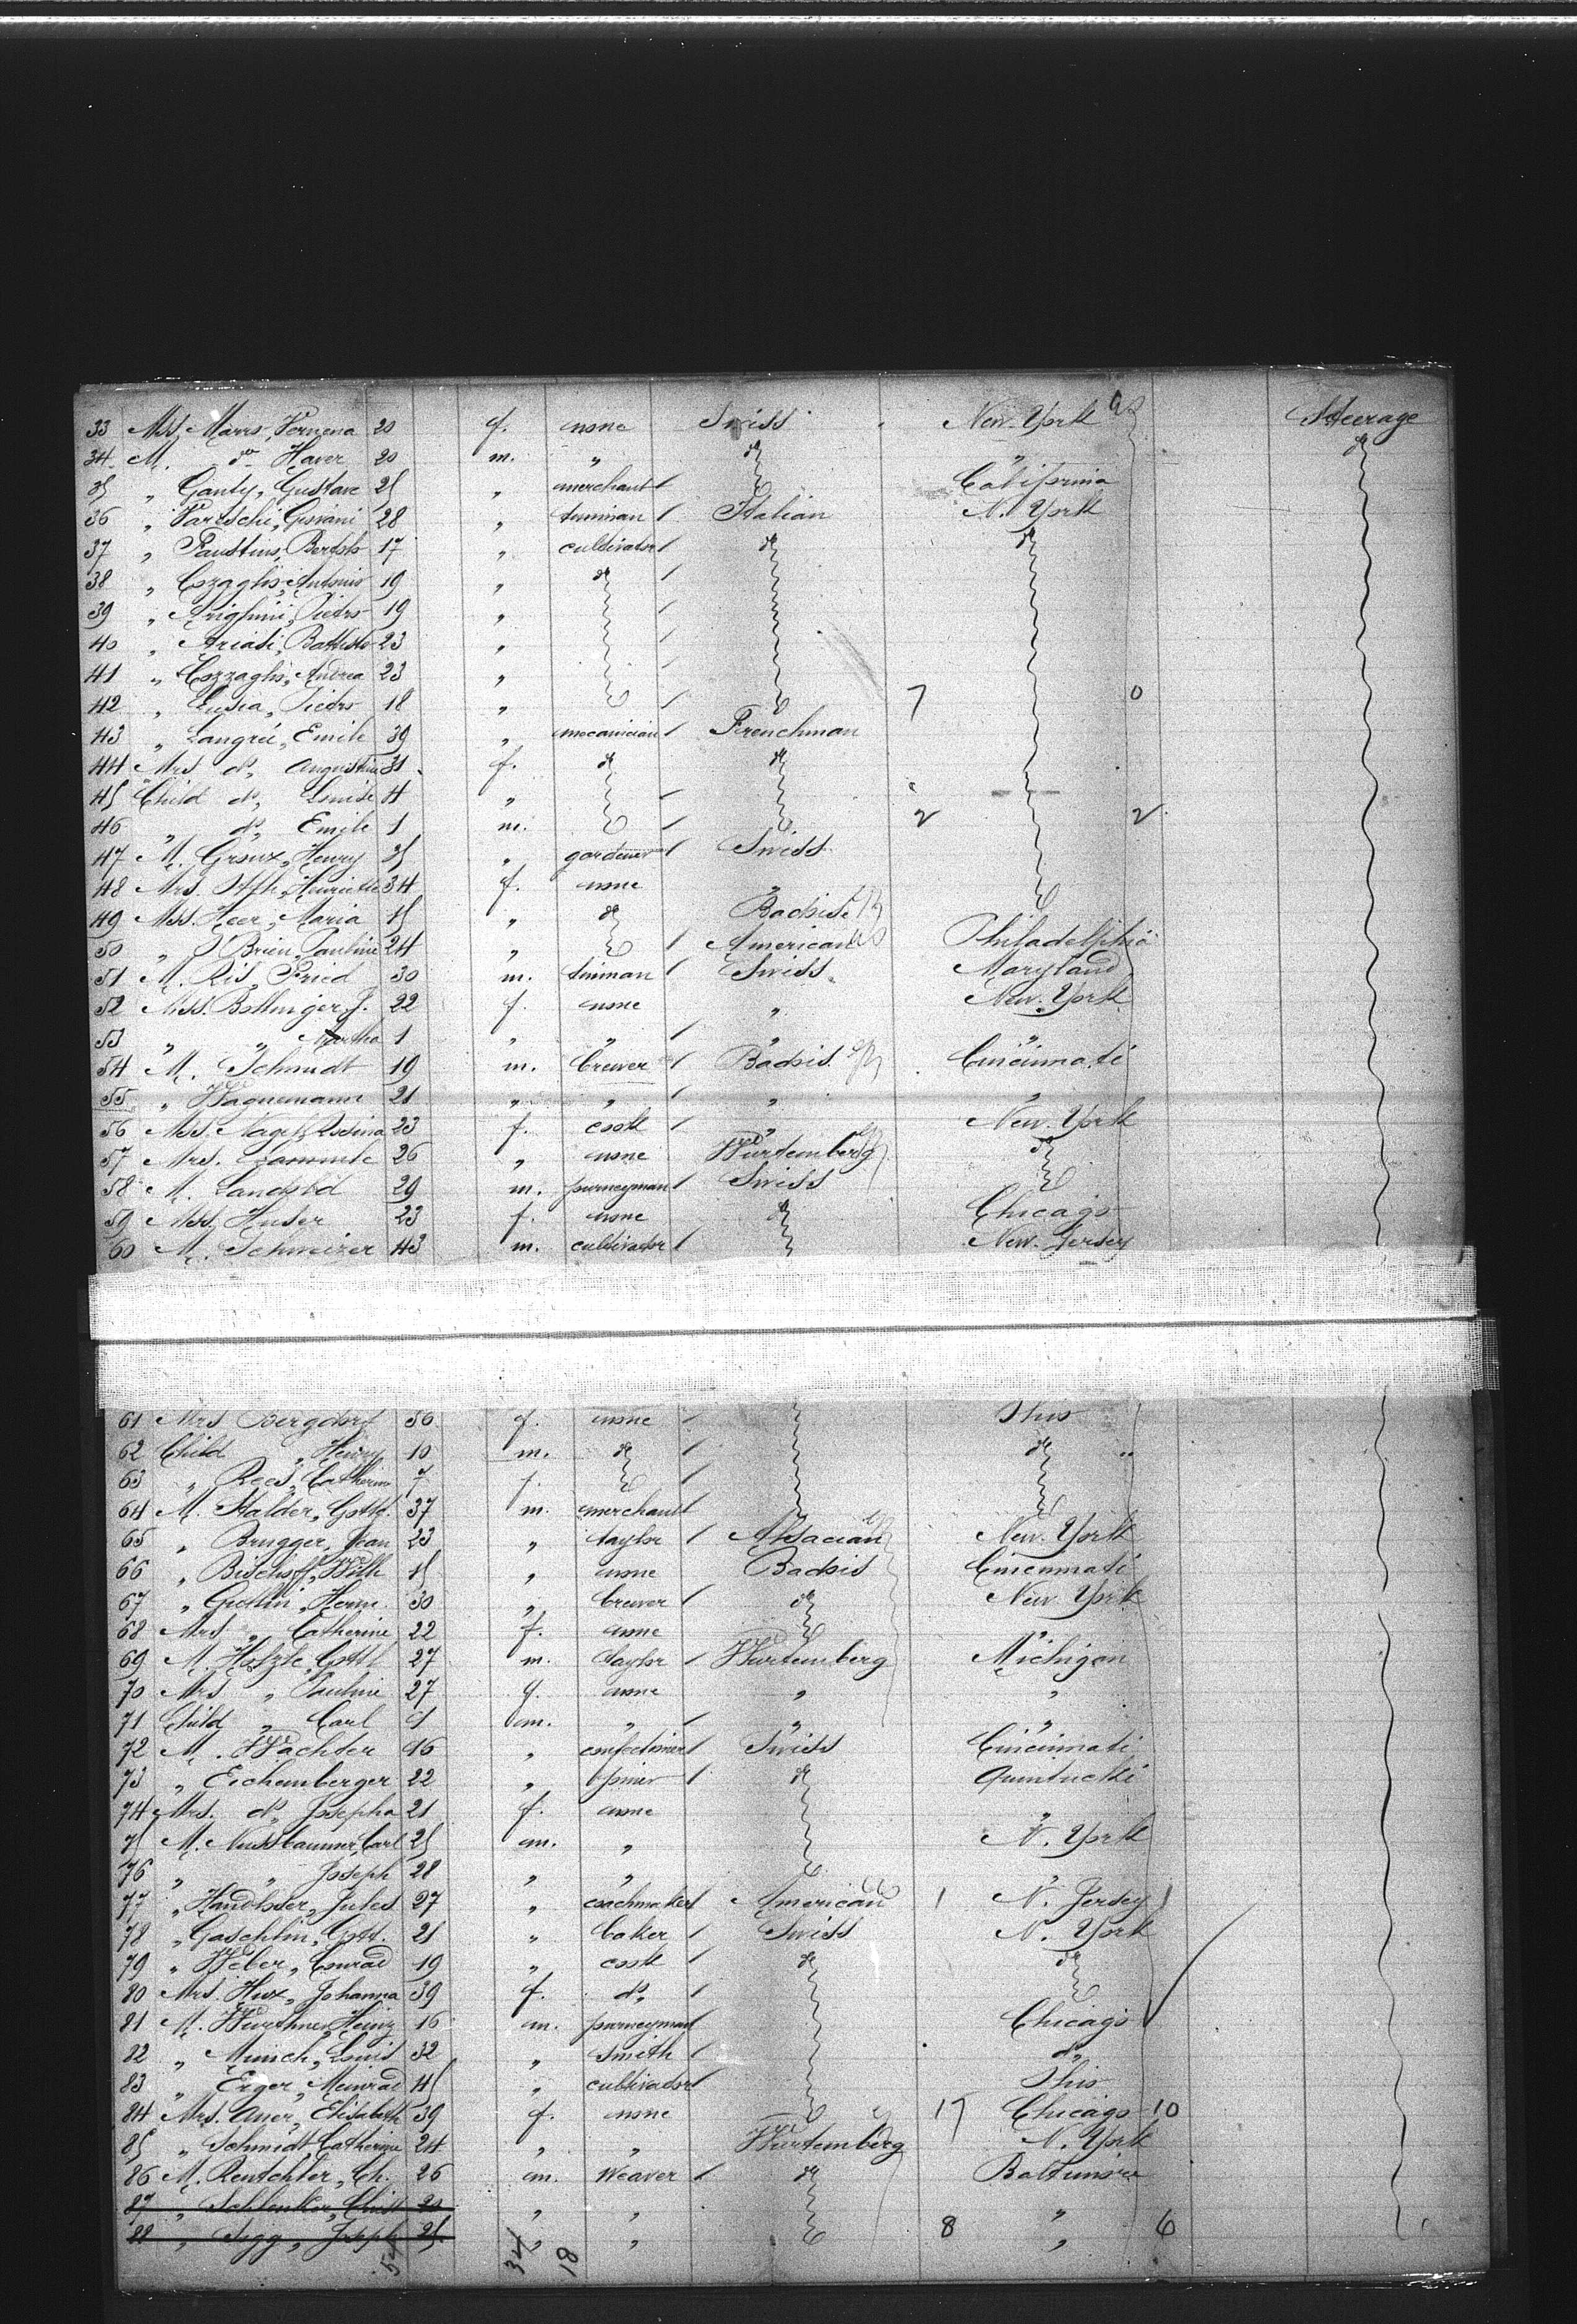 33 Mss. Marro, Verena 20 f. none Swiss New-York Steerage
34 M. do Haver 20 m. " do " do
35 " Ganty, Gustave 25 " merchant California
36 " Giovani 28 " tinman Italian N. York
37 " Faustino, 17 " cultivator do do
38 " Antonio 19 " do
39 " Arighini, Pietro 19 "
40 " Ariasi, Battista 23 "
41 " Cozzaglio, Andrea 23 "
42 " Pietro 18 " 7 0
43 " Emile 39 " mecanician Frenchman
44 Mrs do Augustine 31 f. do do
45 Child do Louise 4 "
46 " do Emile 1 m. 2 2
47 M. Groux, Henry 35 " gardener Swiss
48 Mrs. Henriette 34 f. none "
49 Mss. Heer, Maria 15 " do Badois
50 " O'Brien, Pauline 24 " American Philadelphia
51 M. Ris, Fried 30 m. tinman Swiss Maryland
52 Mss. Bollinger, J. 22 f. none " New-York
53 " " Martha 1 " " " "
54 M. Schmidt 19 m. brewer Badois Cincinnati
55 " Wagnemann 21 " " " "
56 Mss. Nagel, Rosina 23 f. cook " New-York
57 Mrs. 26 " none Wurtemberg do
58 M. Landolt 29 m. journeyman Swiss
59 Mss. Huser 23 f. none do Chicago
60 M. Schweizer 43 m. cultivator New-Jersey
61 Mrs Bergdorf 56 f. none Ohio
62 Child " Henry 10 m. do do
63 " Rees, Catherine 7 f.
64 M. Stalder, Gottl. 37 m. merchant
65 " Brugger, Jean 23 " taylor Alsacian New-York
66 " Bischoff, Wilh 15 " none Badois Cincinnati
67 " Herm. 30 " brewer do New York
68 Mrs " Catherine 22 f. none "
69 M. Holzle, Gottl 27 m. taylor Wurtemberg Michigan
70 Mrs " Pauline 27 f. none " "
71 Child " Carl m. " " "
72 M. Wachter 16 " confectioner Swiss Cincinnati
73 " Eichenberger 22 " joiner do Quintucki
74 Mrs. do Josepha 21 f. none "
75 M. Nussbaumer, Carl 25 m. " N. York
76 " " Joseph 28 " " "
77 " Handloser, Jules 27 " coachmaker American 1 N. Jersey 1
78 " Gaschlin, Gott. 21 " baker Swiss N. York
79 " Weber, Conrad 19 " cook do do
80 Mrs. Hux, Johanna 39 f. do
81 M. Wurthner, Heinz 16 m. journeyman Chicago
82 " Munch, Louis 32 " smith do
83 " Erger, Meinrad 45 " cultivator Ohio
84 Mrs. Auer, Elisabeth 39 f. none 17 Chicago 10
85 " Schmidt, Catherine 24 " " Wurtemberg N. York
86 M. Rentchler, Ch. 26 m. weaver do Baltimore
87 " Schlenker, Christ 20 " " "
88 " Sigg, Joseph 25 " " 8 " 6
54 34 18